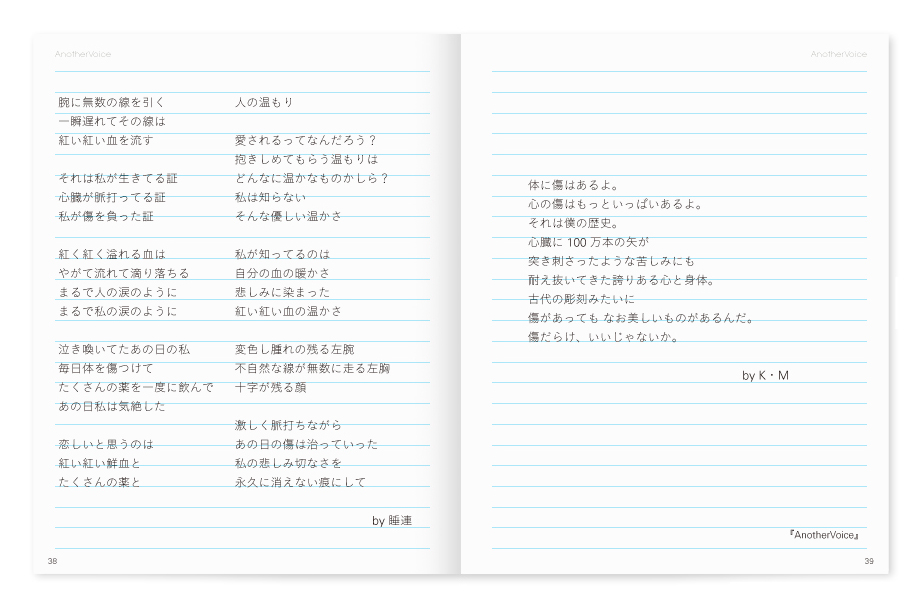 AnotherVoice
腕に無数の線を引く
一瞬遅れてその線は
紅い紅い血を流す
それは私が生きてる証
心臓が脈打ってる証
私が傷を負った証
紅く紅く溢れる血は
やがて流れて滴り落ちる
まるで人の涙のように
まるで私の涙のように
泣き喚いてたあの日の私
毎日体を傷つけて
たくさんの薬を一度に飲んで
あの日私は気絶した
恋しいと思うのは
紅い紅い鮮血と
たくさんの薬と
人の温もり
愛されるってなんだろう？
抱きしめてもらう温もりは
どんなに温かなものかしら？
私は知らない
そんな優しい温かさ
私が知ってるのは
自分の血の暖かさ
悲しみに染まった
紅い紅い血の温かさ
変色し腫れの残る左腕
不自然な線が無数に走る左胸
十字が残る顔
激しく脈打ちながら
あの日の傷は治っていった
私の悲しみ切なさを
永久に消えない痕にして
by 睡連
38
AnotherVoice
体に傷はあるよ。
心の傷はもっといっぱいあるよ。
それは僕の歴史。
心臓に 100 万本の矢が
突き刺さったような苦しみにも
耐え抜いてきた誇りある心と身体。
古代の彫刻みたいに
傷があっても なお美しいものがあるんだ。
傷だらけ、いいじゃないか。
by K・M
『AnotherVoice』
39